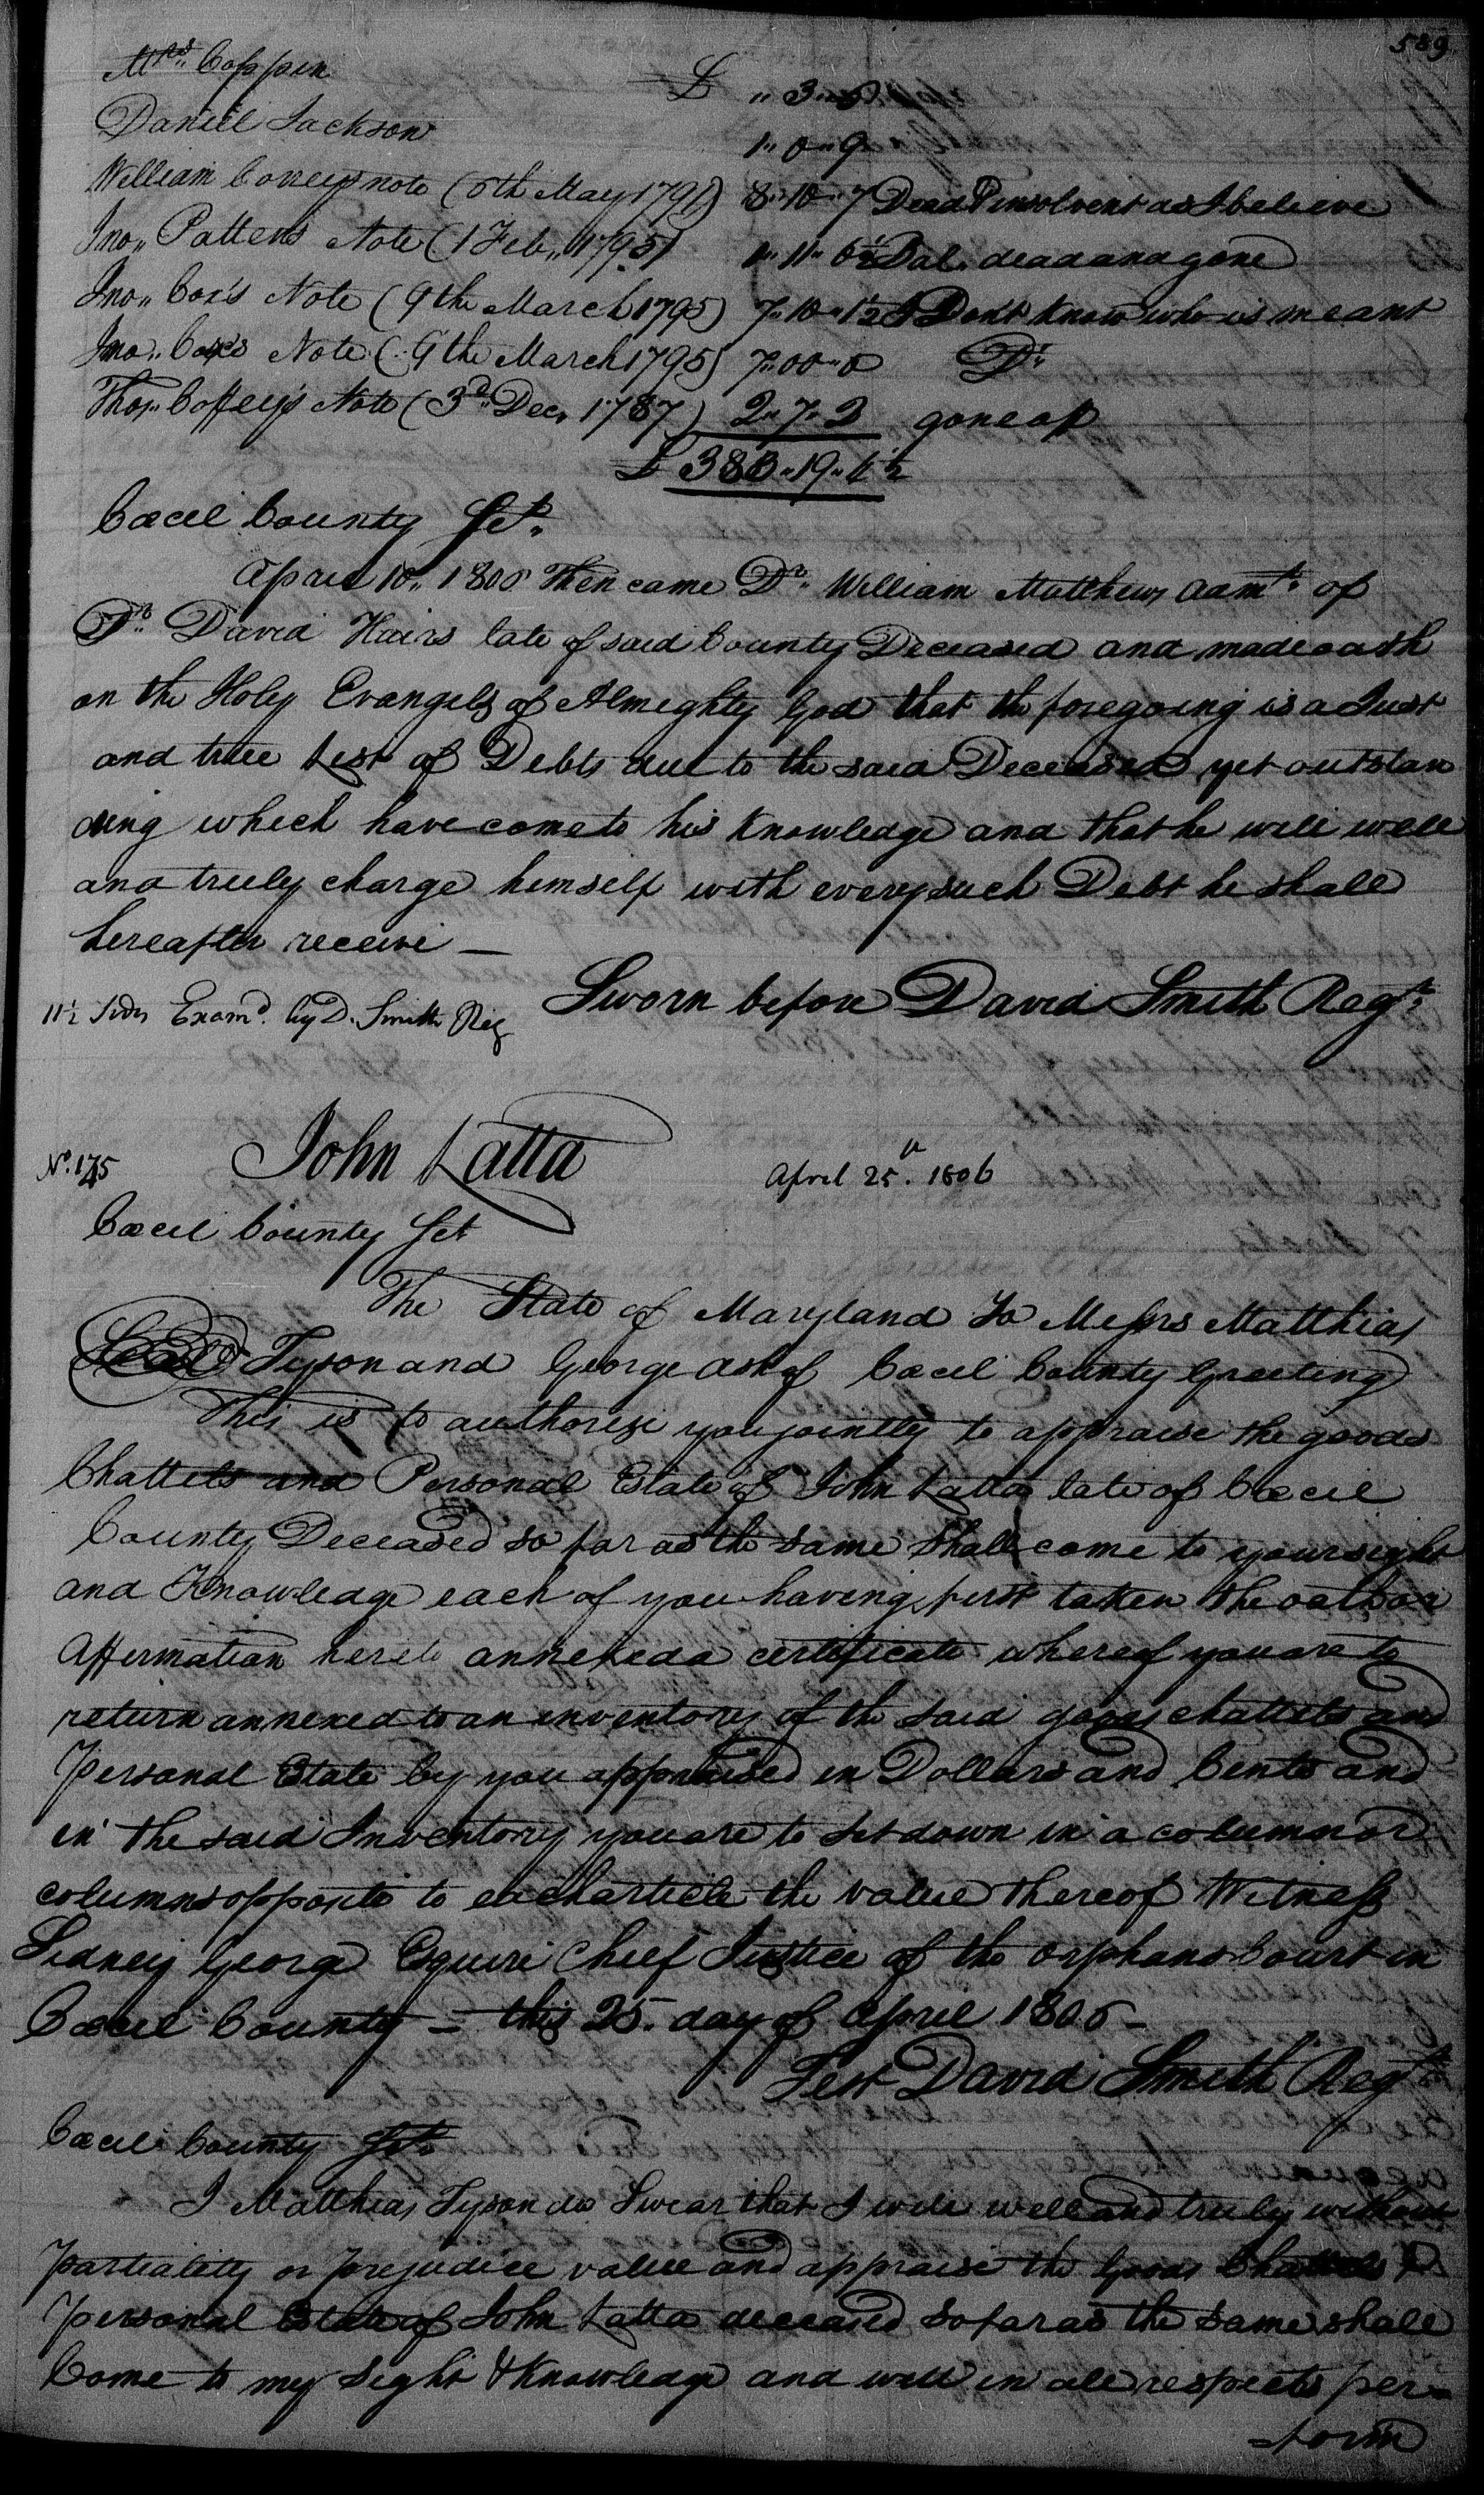 589
Mrs. Coppen £ " 3 "
Daniel Jackson 1 " 0 " 9
William note (5th May 1791) 8 " 10 " 7 Dead & insolvent as I believe
Jno,, Pattens Note (1 Feb,, 1795) 11 " 6½ Bal. dead and gone
Jno,, Cox's Note (9th March 1795) 7 " 10 " 1½ I Dont know who is meant
Jno,, Cox's Note (9th March 1795) 7 " 00 " 0 Do
Thos,, Coffey's Note (3d Dec. 1787) 2 " 7 " 3 gone off
£ 383 " 19 " 4½
Cæcil County Sct.
April 10,, 1806 Then came Dr. William Matthews admr. of
Dr. David Hairs late of said County Deceased and made oath
on the Holy Evangels of Almighty God that the foregoing is a Just
and true List of Debts due to the said Deceased yet outstan
ding which have come to his knowledge and that he will well
and truely charge himself with every such Debt he shall
hereafter receive —
Sworn before David Smith Regr.
11½ Sides Examd. by D. Smith Reg
John Latta
No. 175 April 25th. 1806
Cæcil County Sct
The State of Maryland To Messrs Matthias
Seal Tyson and George Ash of Cæcil County Greeting
This is to authorise you jointly to appraise the goods
Chattels and Personal Estate of John Latta late of Cæcil
County Deceased so far as the same shall come to your sight
and Knowledge each of you having first taken the oath or
Affirmation hereto annexed a certificate whereof you are to
return annexed to an inventory of the said goods chattels and
Personal Estate by you appraised in Dollars and Cents and
in the said Inventory you are to set down in a column or
columns opposite to each article the value thereof Witness
Sidney George Esquire Chief Justice of the orphans Court in
Cæcil County — this 25. day of April 1806 —
Test David Smith Regr.
Cæcil County Sct.
I Matthias Tyson do Swear that I will well and truly without
partiality or prejudice value and appraise the Goods Chattels &
personal Estate of John Latta deceased so far as the same shall
Come to my Sight & Knowledge and will in all respects per-
-form